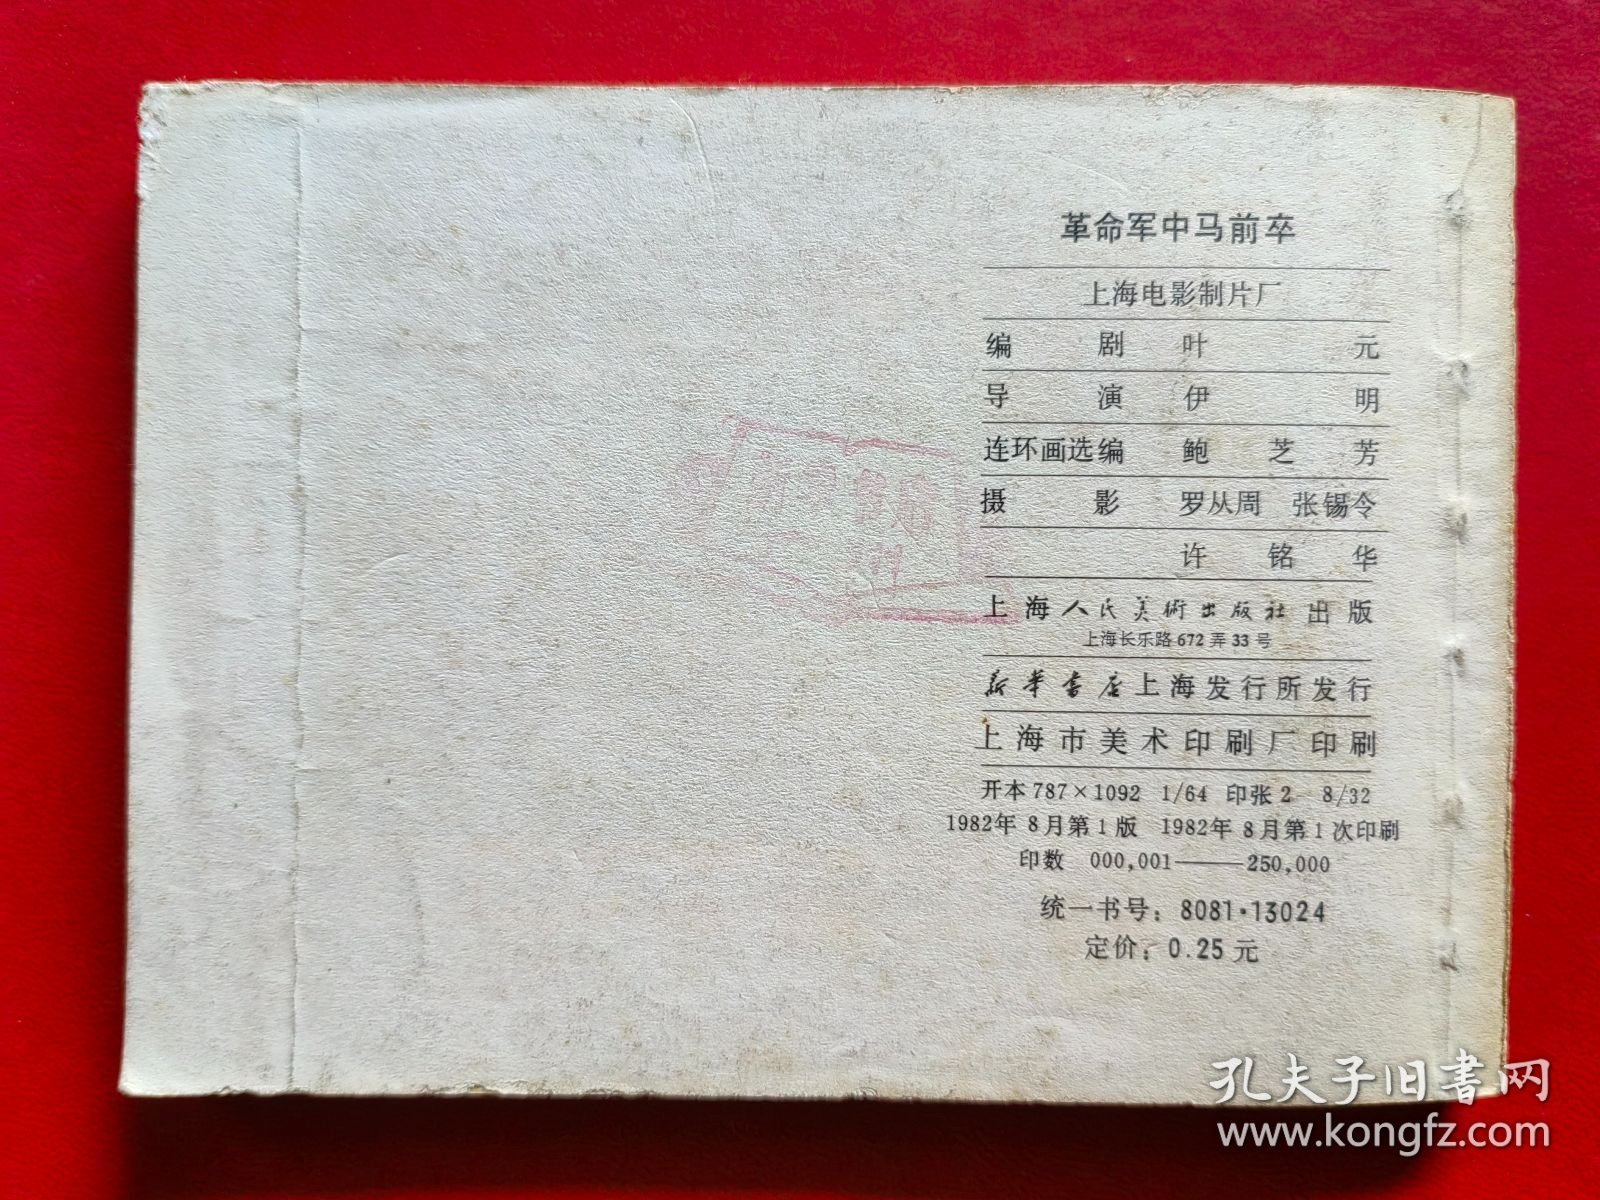 革命军中马前卒
上海电影制片厂
编剧 叶元
导演 伊明
连环画选编 鲍芝芳
摄影 罗从周 张锡令
许铭华
上海人民美術出版社出版
上海长乐路672弄33号
新华书店上海发行所发行
上海市美术印刷厂印刷
开本787×1092 1/64 印张2 8/32
1982年8月第1版 1982年8月第1次印刷
印数 000,001——250,000
统一书号：8081·13024
定价：0.25元
孔夫子旧書网
www.kongfz.com